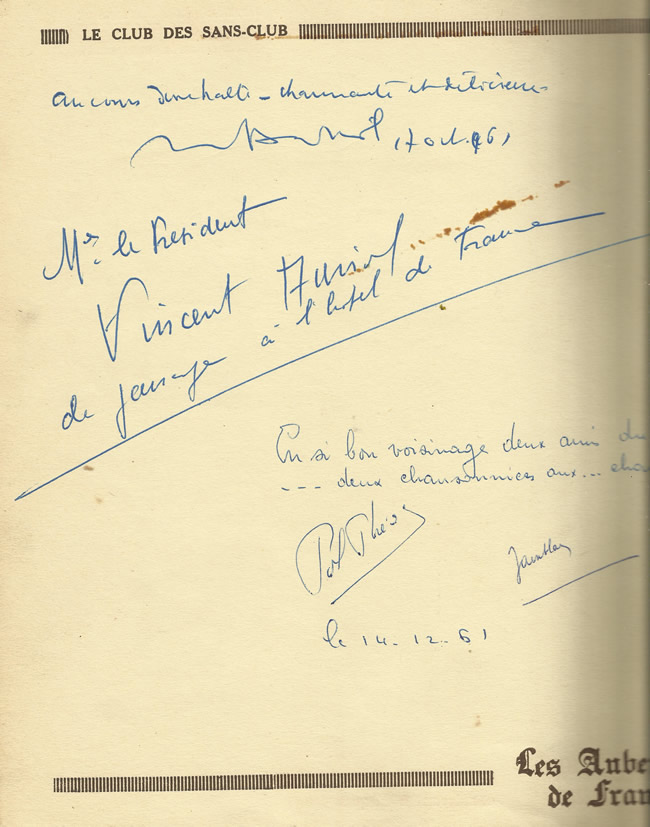 LE CLUB DES SANS-CLUB
au cours d'une halte - charmante et délicieuse
17 oct. 61
Mr. le Président
Vincent Auriol
de passage à l'hotel de France
En si bon voisinage deux amis du
--- deux chansonniers aux... cha
le 14-12-61
Les Aube
de Fran